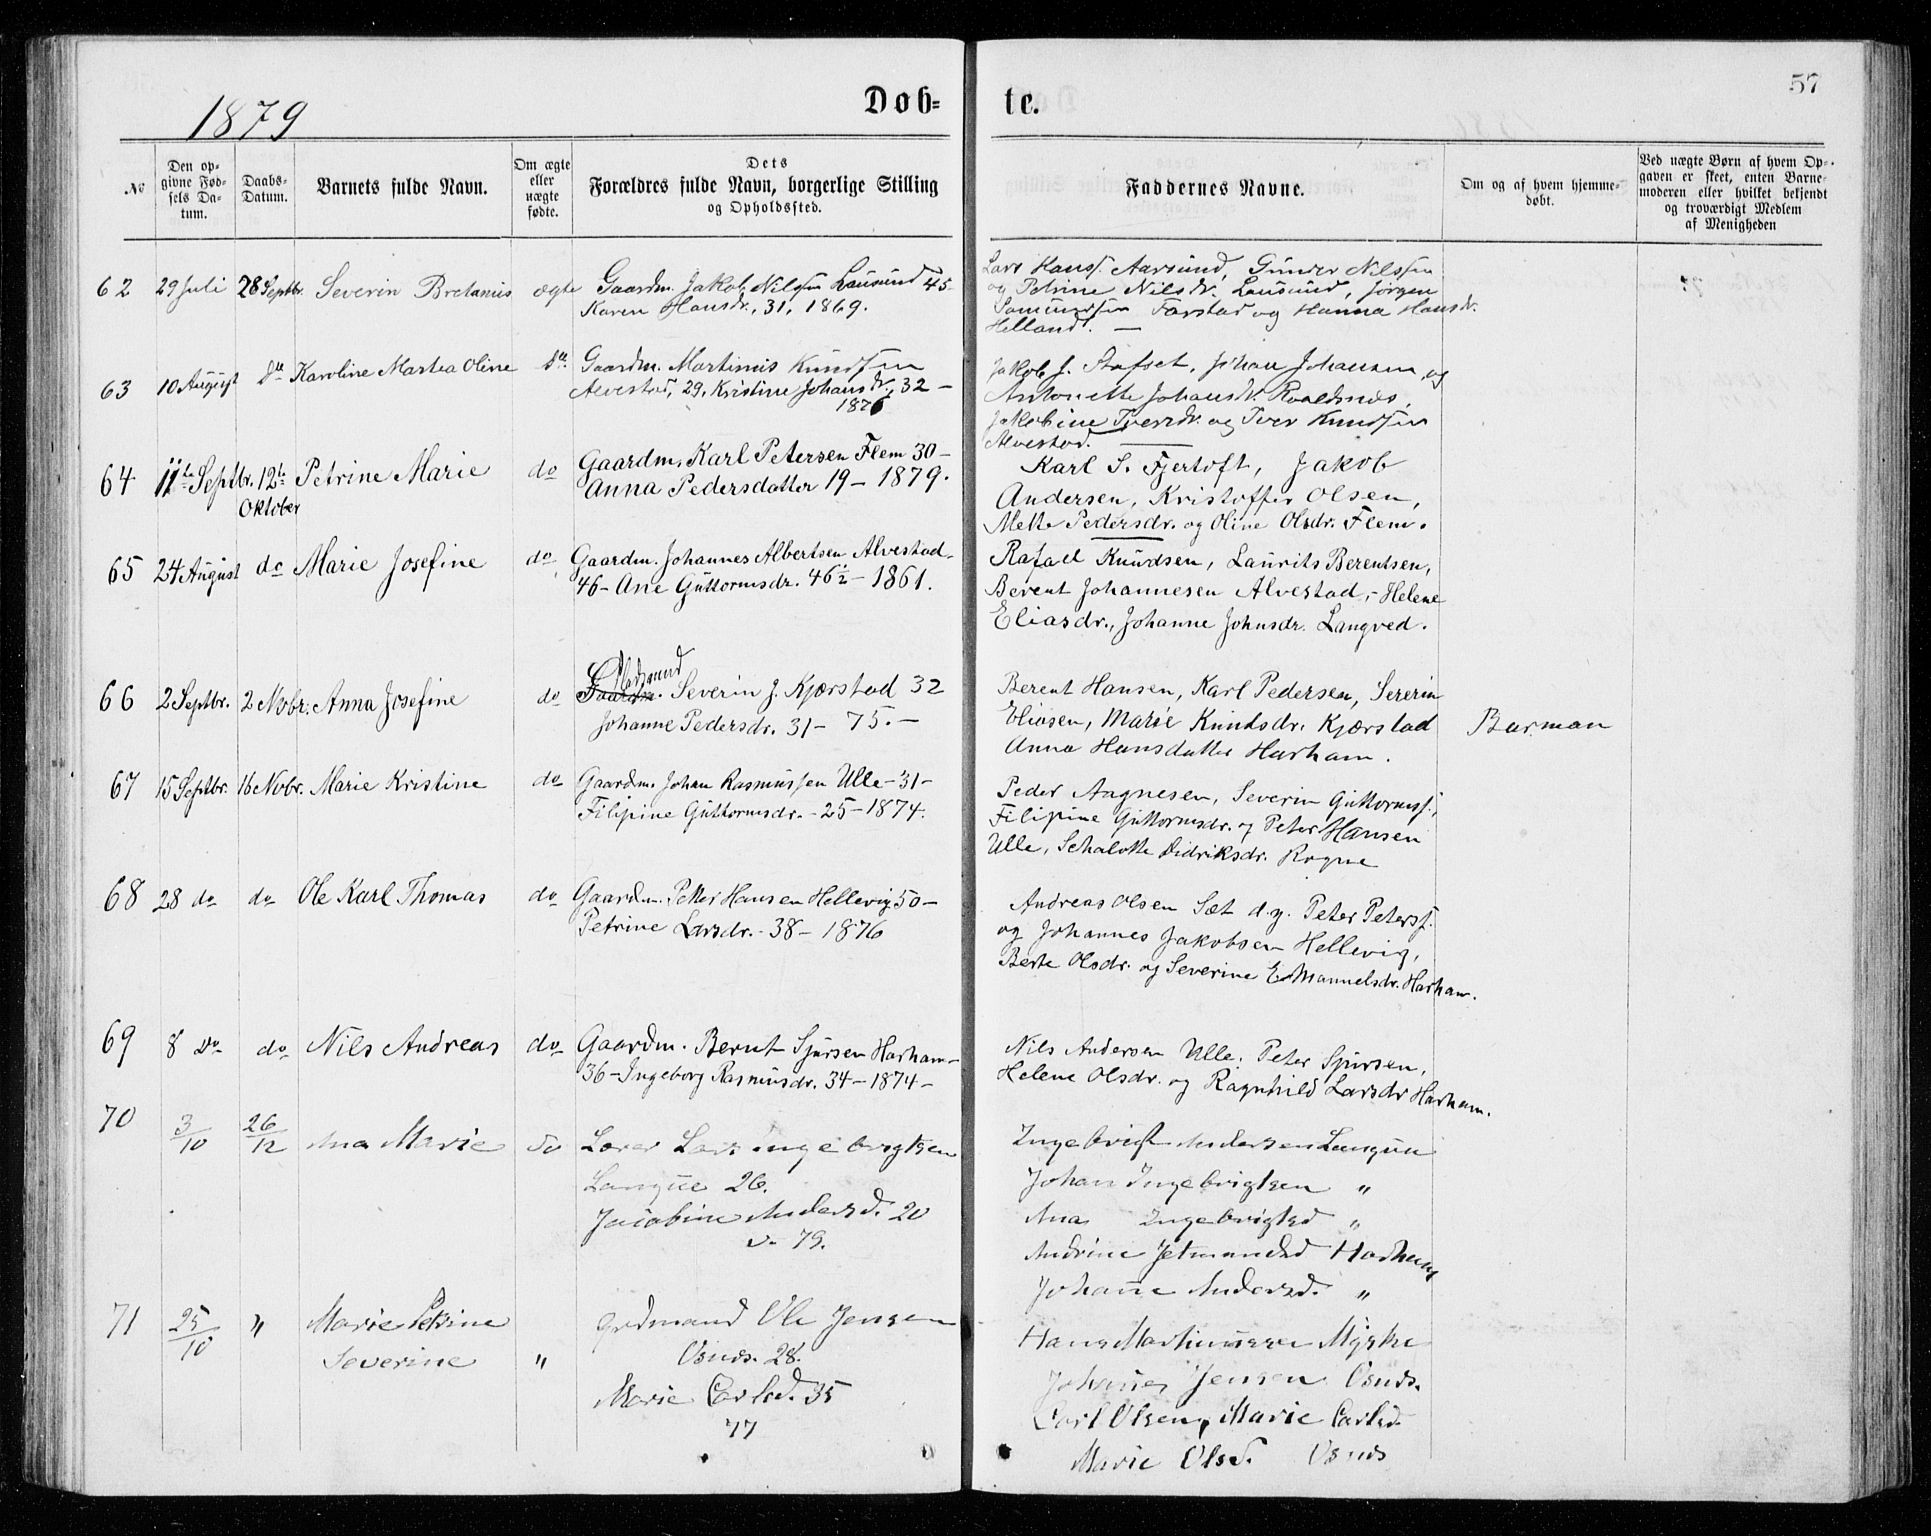 1879
Døb-
te.
57
No
Den opgivne Fødsels Datum.
Daabs-Datum.
Barnets fulde Navn.
Om ægte eller uægte fødte.
Dets
Forældres fulde Navn, borgerlige Stilling
og Opholdssted.
Faddernes Navne.
Om og af hvem hjemmedøbt.
Ved uægte Børn af hvem Opgaven er skeet, enten Barnemoderen eller hvilket bekjendt og troværdigt Medlem af Menigheden
62 29 Juli 28 Septbr. Severin Bretanius ægte Gaardm. Jakob Nilssen Lausund 45-
Karen Hansdr., 31, 1869.
Lars Hanss. Aarsund, Gunder Nilssen
og Petrine Nilsdr. Lausund, Jørgen
Samundsen Farstad og Hanna Hansdr.
Helland. —
63 10 August do Karoline Martea Oline do Gaardm. Martinus Knudssen
Alvestad, 29, Kristine Johansdr., 32 –
1876
Jakob J. Stafset, Johan Johansen og
Antonette Johansdr. Roaldsnes,
Jakobine Iversdr. og Iver Knudssen
Alvestad. —
64 11te Septbr. 12te Oktober Petrine Marie do Gaardm. Karl Petersen Flem 30 –
Anna Pedersdatter 19 – 1879.
Karl S. Fjertoft, Jakob
Andersen, Kristoffer Olsen,
Mette Pedersdr. og Oline Olsdr. Flem.
65 24 August do Marie Josefine do Gaardm. Johannes Albertsen Alvestad –
46 – Ane Guttormsdr. 46½ – 1861.
Rafael Knudsen, Laurits Berentsen,
Berent Johannesen Alvestad, – Helene
Eliasdr., Johanne Johnsdr. Langved.
66 2 Septbr. 2 Novbr. Anna Josefine do Gaardm. Severin J. Kjærstad 32
Johanne Pedersdr. 31 – 75. –
Berent Hansen, Karl Pedersen, Severin
Eliasen, Marie Knudsdr. Kjærstad
Anna Hansdatter Harham.
Barman
67 15 Septbr. 16 Novbr. Marie Kristine do Gaardm. Johan Rasmussen Ulle – 31 –
Filipine Guttormsdr. – 25 – 1874.
Peder Aagnesen, Severin Guttormss.,
Filipine Guttormsdr. og Peter Hansen
Ulle, Schalotte Didriksdr. Rogne
68 28 do do Ole Karl Thomas do Gaardm. Petter Hansen Hellevig 50 –
Petrine Larsdr. – 38 – 1876
Andreas Olsen Sæt d.y. Peter Peterss.
og Johannes Jakobsen Hellevig,
Berte Olsdr. og Severine Emmanuelsdr. Harham.
69 8 do do Nils Andreas do Gaardm. Bernt Sjursen Harham –
36 – Ingeborg Rasmusdr. 34 – 1874 –
Nils Andersen Ulle, Peter Sjursen,
Helene Olsdr. og Ragnhild Larsdr Harham.
70 3/10 26/12 Ana Marie do Lærer Lars Ingebrigtsen
Langue 26.
Jacobine Andersd. 20
79.
Ingebrigt Andersen Langue
Johan Ingebrigtsen "
Ana Ingebrigtsd "
Andrine Jetmundsd Harham
Johane Andersd. "
71 25/10 " Marie Petrine
Severine " Grdmand Ole Jensen
Osnes. 28.
Marie Carlsd. 35
77
Hans Martinussen Myske
Johannes Jensen Osnes.
Carl Olsen, Marie Carlsd.
Marie Olsd. Osnes